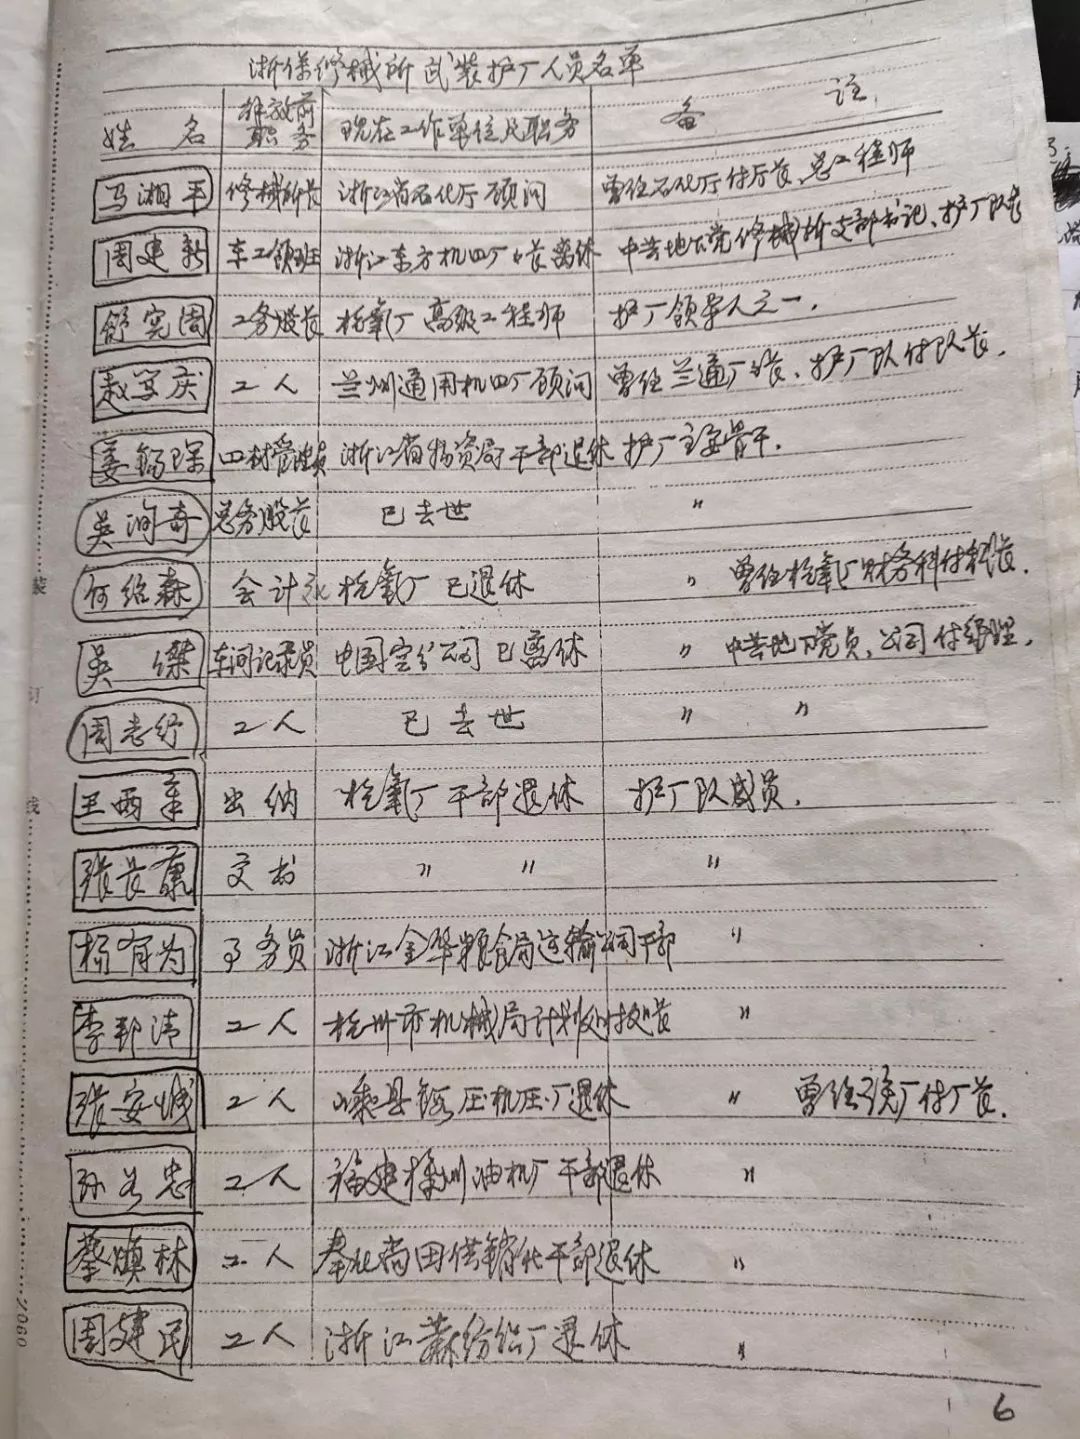 浙保修械所武装护厂人员名单
姓名 解放前职务 现在工作单位及职务 备注
马湘平 修械所长 浙江省石化厅顾问 曾任石化厅付厅长、总工程师
周建新 车工领班 浙江东方机四厂厂长离休 中共地下党修械所支部书记、护厂队长
舒宪周 工务股长 杭氧厂高级工程师 护厂领导人之一.
赵 庆 工人 兰州通用机四厂顾问 曾任兰通厂厂长、护厂队付队长.
姜 琛 四材管理员 浙江省物资局干部退休 护厂主要骨干.
吴洵奇 总务股长 已去世 〃
何绍森 会计 杭氧厂已退休 〃 曾任杭氧厂财务科付科长.
吴傑 车间记录员 中国空分公司已离休 〃 中共地下党员、公司付经理.
周志纾 工人 已去世 〃 〃
王西 出纳 杭氧厂干部退休 护厂队成员.
张长康 文书 〃 〃 〃
杨有为 事务员 浙江金华粮食局运输公司干部 〃
李邦 工人 杭州市机械局计划处付处长 〃
张安城 工人 嵊县 厂退休 〃 曾任 厂付厂长.
孙 忠 工人 福建樟州油机厂干部退休 〃
蔡 林 工人 奉化尚田供销社干部退休 〃
周建民 工人 浙江麻纺织厂退休 〃
装
订
线
2060
6